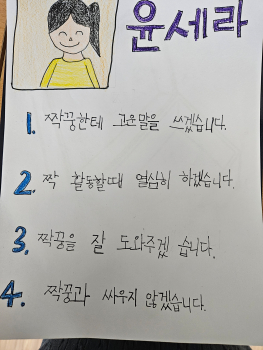 윤세라
1. 짝꿍한테 고운말을 쓰겠습니다.
2. 짝 활동할때 열심히 하겠습니다.
3. 짝꿍을 잘 도와주겠 습니다.
4. 짝꿍과 싸우지 않겠습니다.